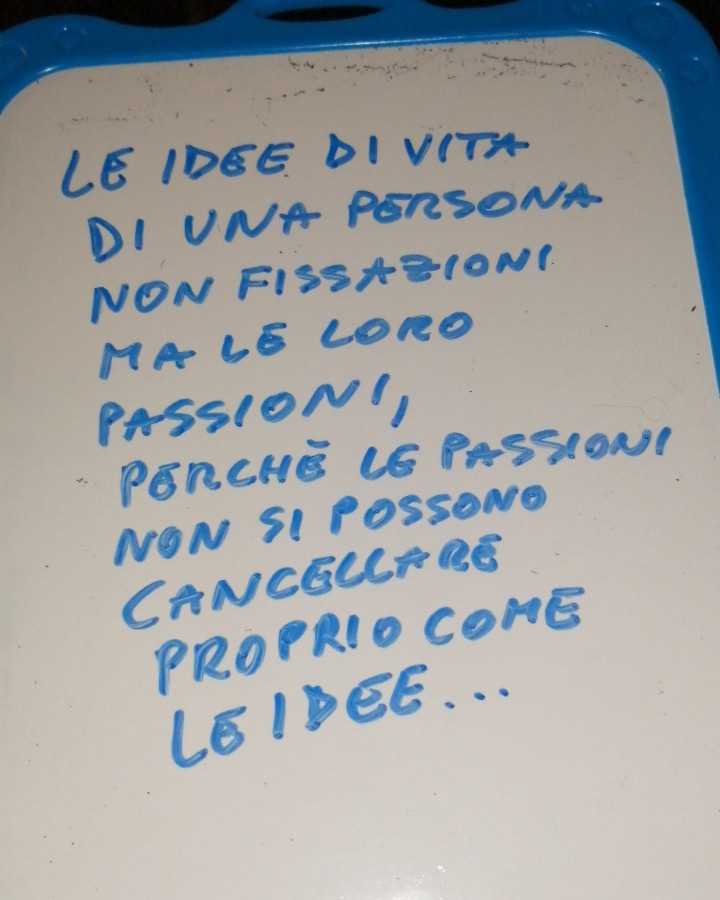 LE IDEE DI VITA
DI UNA PERSONA
NON FISSAZIONI
MA LE LORO
PASSIONI,
PERCHÈ LE PASSIONI
NON SI POSSONO
CANCELLARE
PROPRIO COME
LE IDEE...